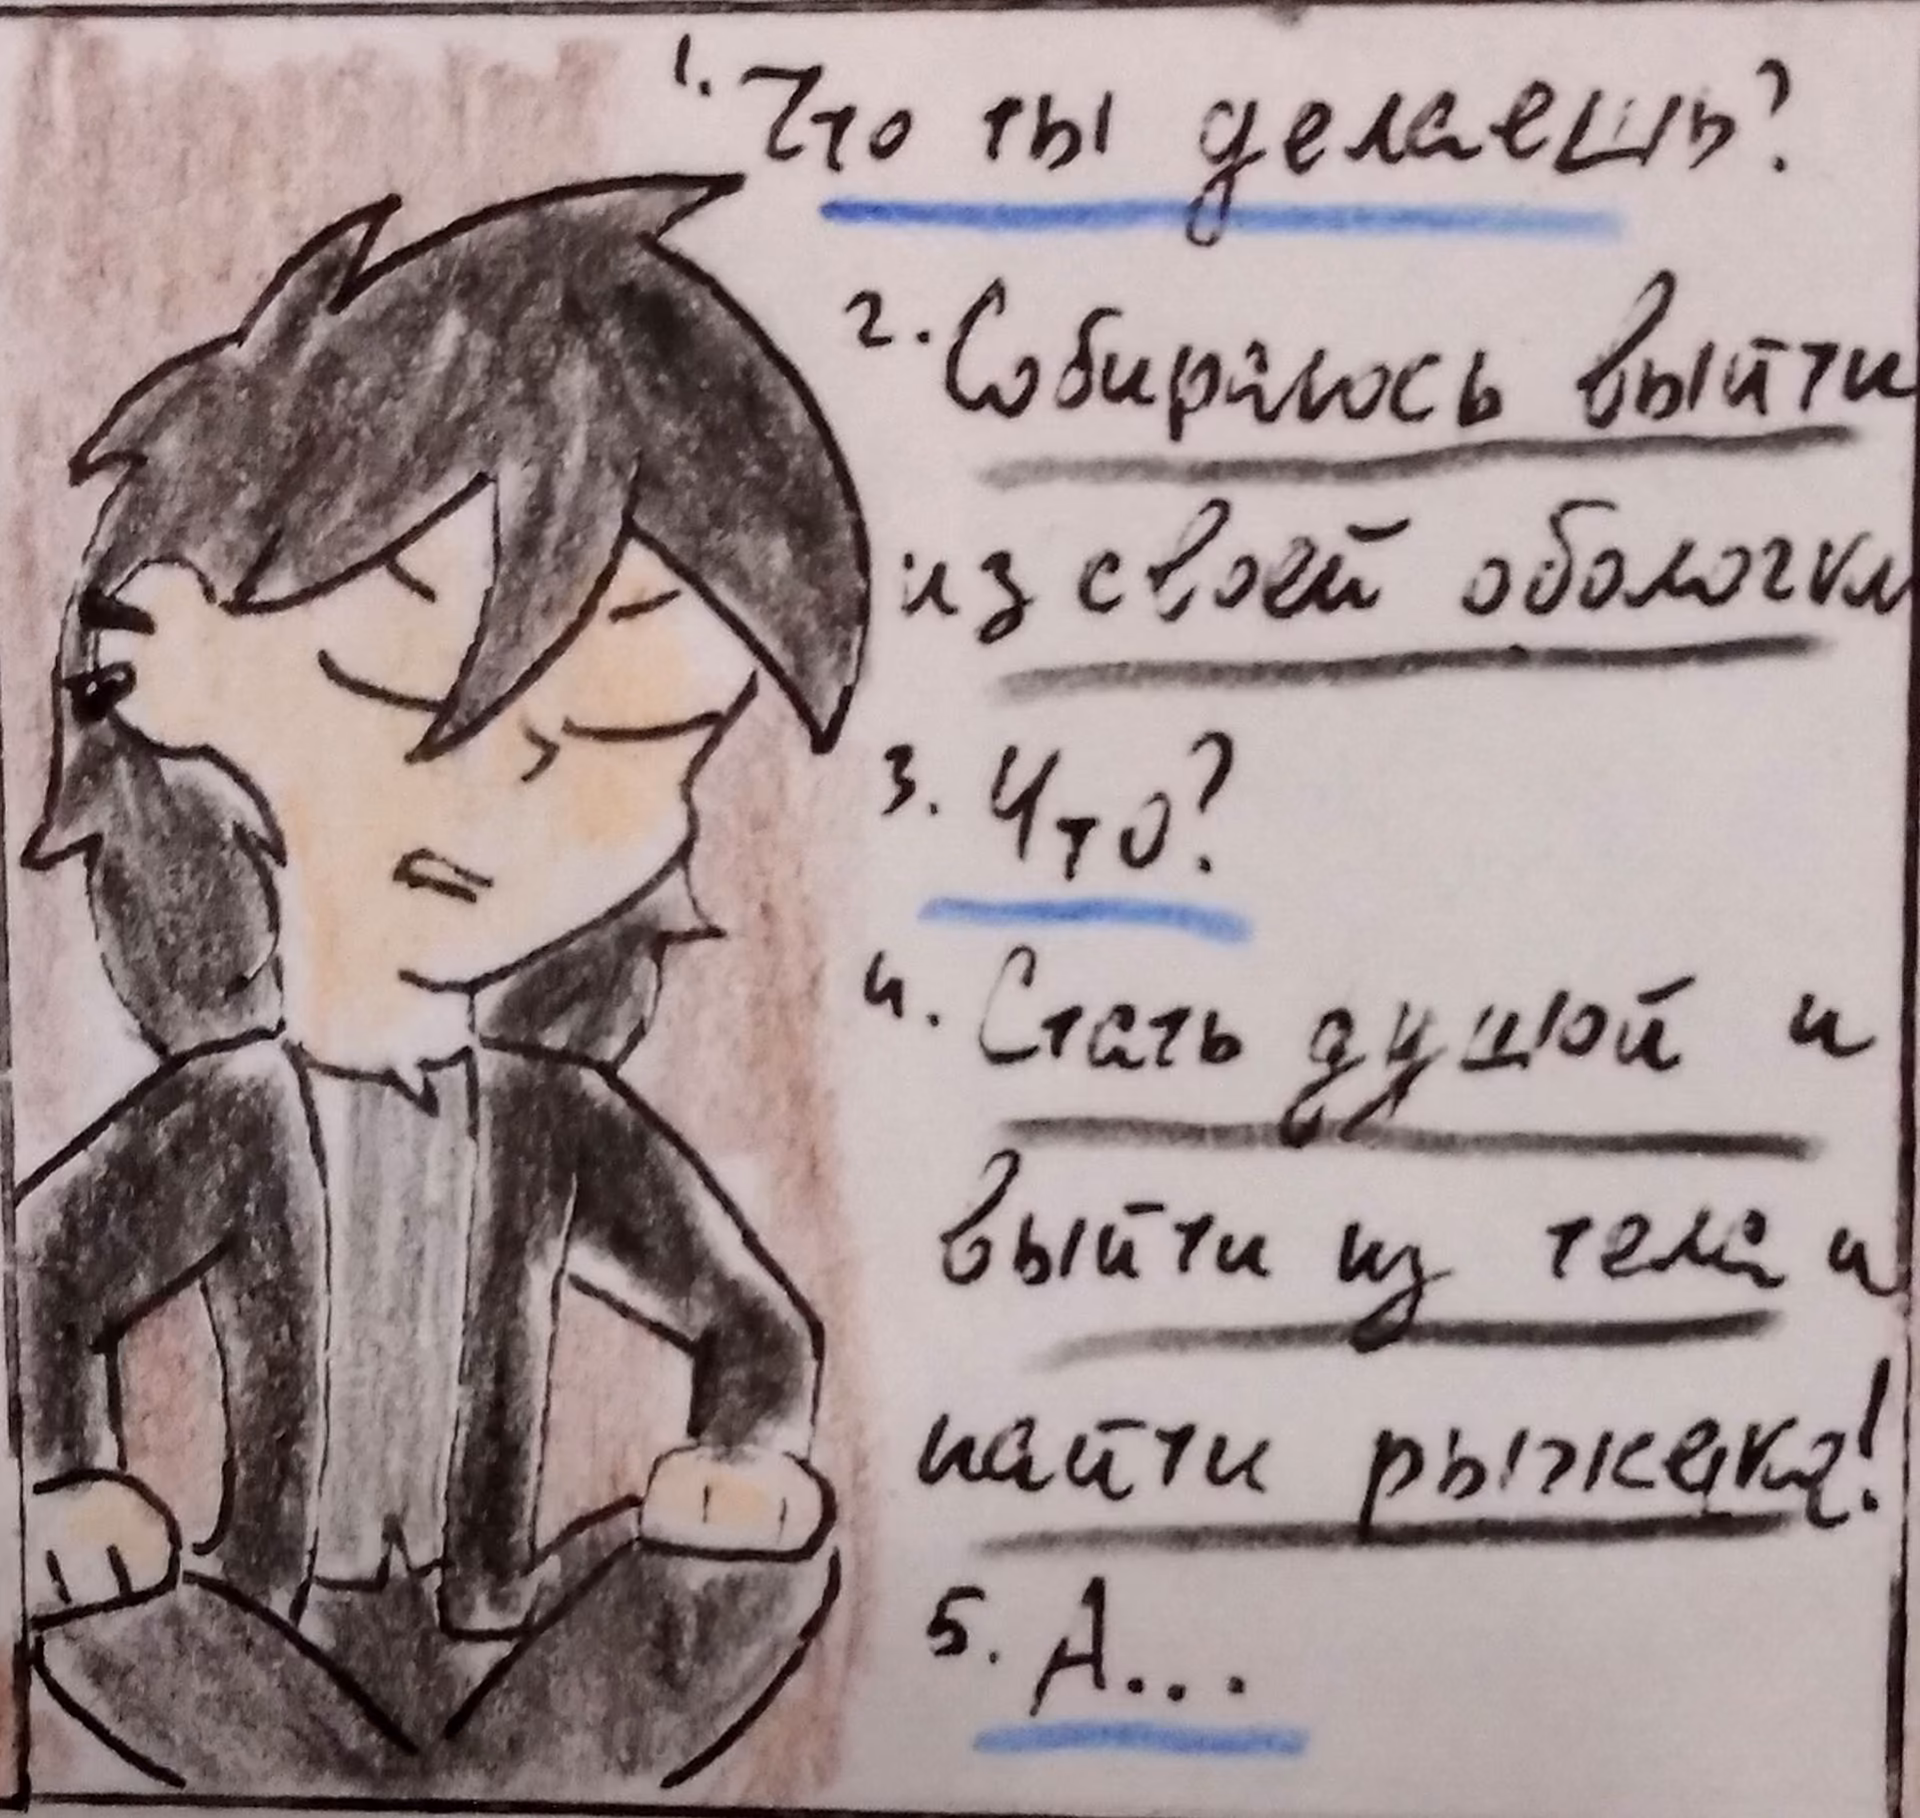 1. Что ты делаешь?
2. Собираюсь выйти
из своей оболочки
3. Что?
4. Стать душой и
выйти из тела и
найти рыжека!
5. А...